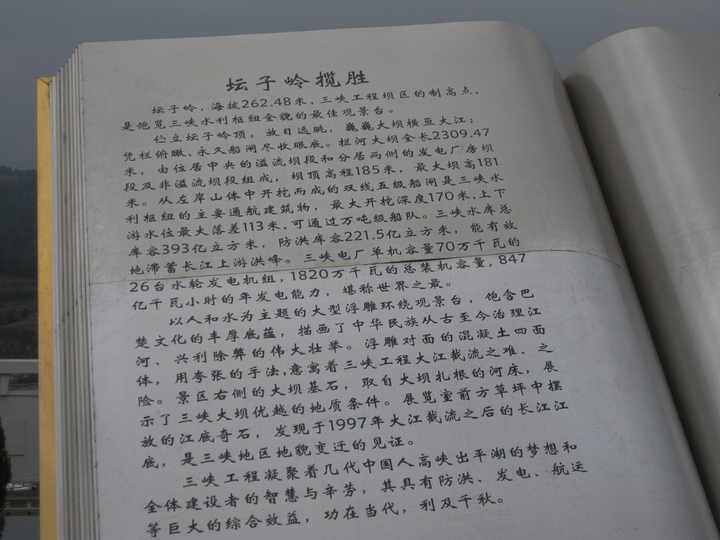 坛子岭揽胜
坛子岭，海拔262.48米、三峡工程坝区的制高点，
是饱览三峡水利枢纽全貌的最佳观景台。
伫立坛子岭顶，放目远眺，巍巍大坝横亘大江；
凭栏俯瞰，永久船闸尽收眼底。拦河大坝全长2309.47
米，由位居中央的溢流坝段和分居两侧的发电厂房坝
段及非溢流坝段组成，坝顶高程185米，最大坝高181
米。从左岸山体中开挖而成的双线五级船闸是三峡水
利枢纽的主要通航建筑物，最大开挖深度170米，上下
游水位最大落差113米，可通过万吨级船队。三峡水库总
库容393亿立方米，防洪库容221.5亿立方米，能有效
地滞蓄长江上游洪峰。三峡电厂单机容量70万千瓦的
26台水轮发电机组，1820万千瓦的总装机容量，847
亿千瓦小时的年发电能力，堪称世界之最。
以人和水为主题的大型浮雕环绕观景台，饱含巴
楚文化的丰厚底蕴，描画了中华民族从古至今治理江
河、兴利除弊的伟大壮举。浮雕对面的混凝土四面
体，用夸张的手法，意寓着三峡工程大江截流之难、之
险。景区右侧的大坝基石，取自大坝扎根的河床，展
示了三峡大坝优越的地质条件。展览室前方草坪中摆
放的江底奇石，发现于1997年大江截流之后的长江江
底，是三峡地区地貌变迁的见证。
三峡工程凝聚着几代中国人高峡出平湖的梦想和
全体建设者的智慧与辛劳，其具有防洪、发电、航运
等巨大的综合效益，功在当代，利及千秋。